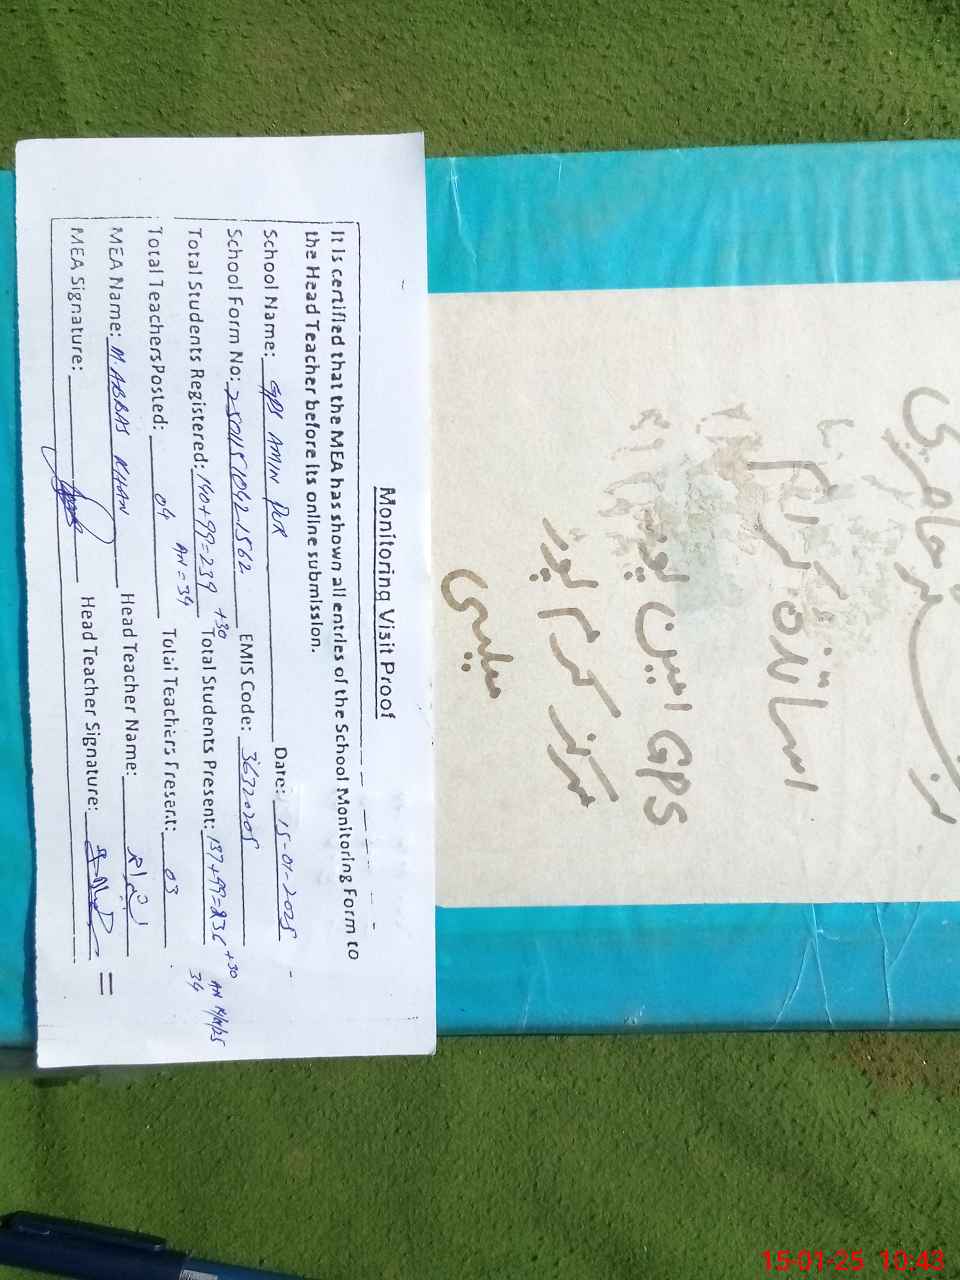 Monitoring Visit Proof
It is certified that the MEA has shown all entries of the School Monitoring Form to
the Head Teacher before its online submission.
School Name: GPS AMIN PUR Date: 15-01-2025
School Form No: 25011510421562 EMIS Code: 36720205
Total Students Registered: 140+99=239 +30 Total Students Present: 137+99=236 +30
AN = 34
34
Total Teachers Posted: 04 Total Teachers Present: 03
MEA Name: M. ABBAS KHAN Head Teacher Name:
MEA Signature: Head Teacher Signature:
اساتذہ کرام
GPS امین پور
مرکز کرم پور
میلسی
15-01-25 10:43